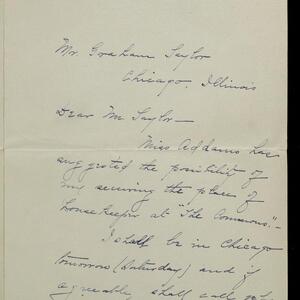 Mr. Graham Taylor
Chicago, Illinois
Dear Mr Taylor—
Miss Addams has
suggested the posibility of
my securing the place of
housekeeper at "The Commons".—
I shall be in Chicago
tomorrow (Saturday) and if
agreeable shall call